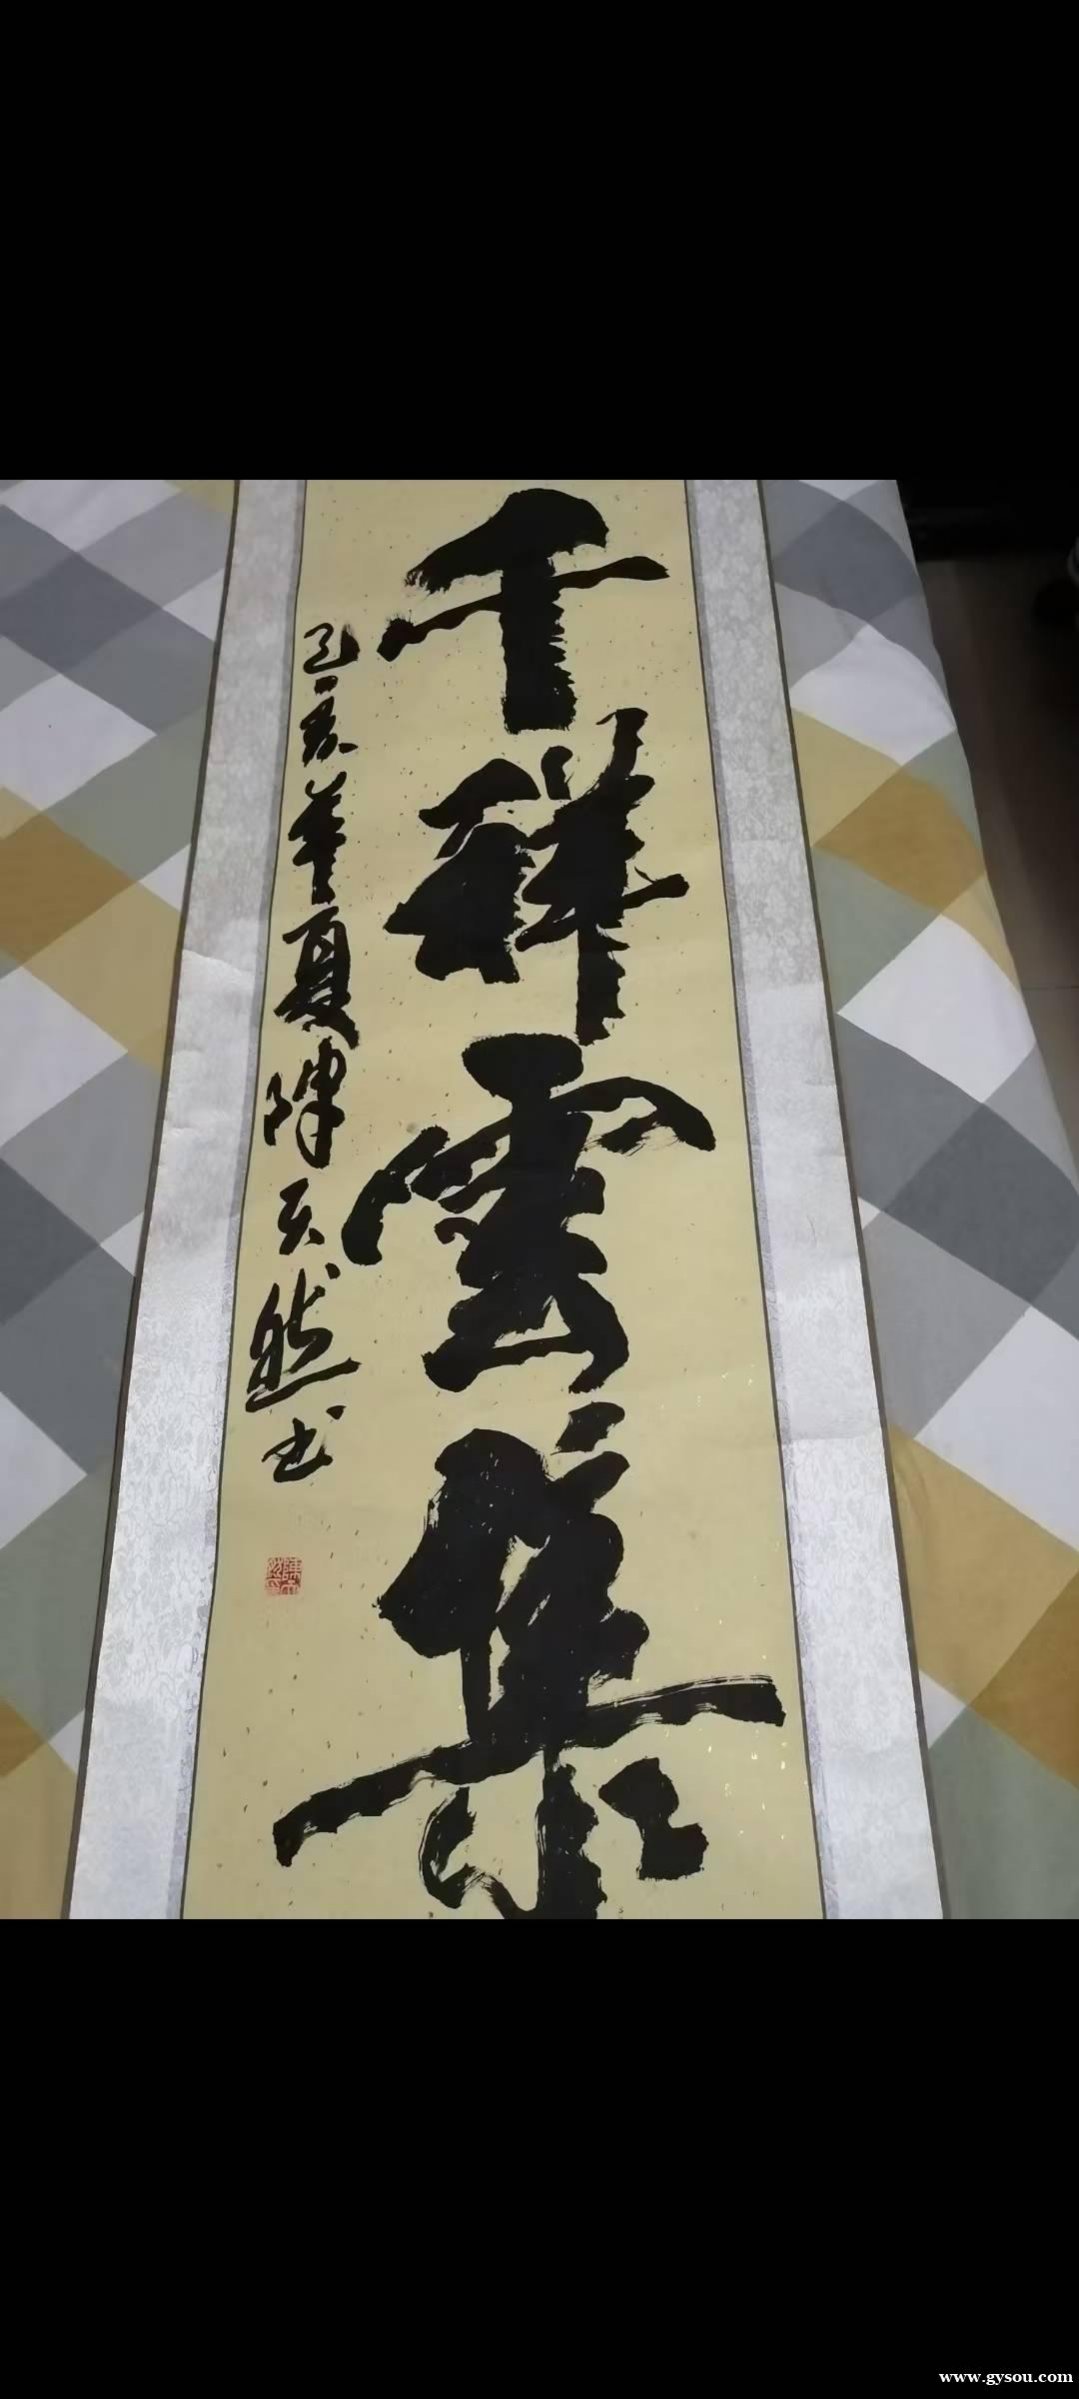 千祥雲集
己亥年夏陳天然书
www.gysou.com